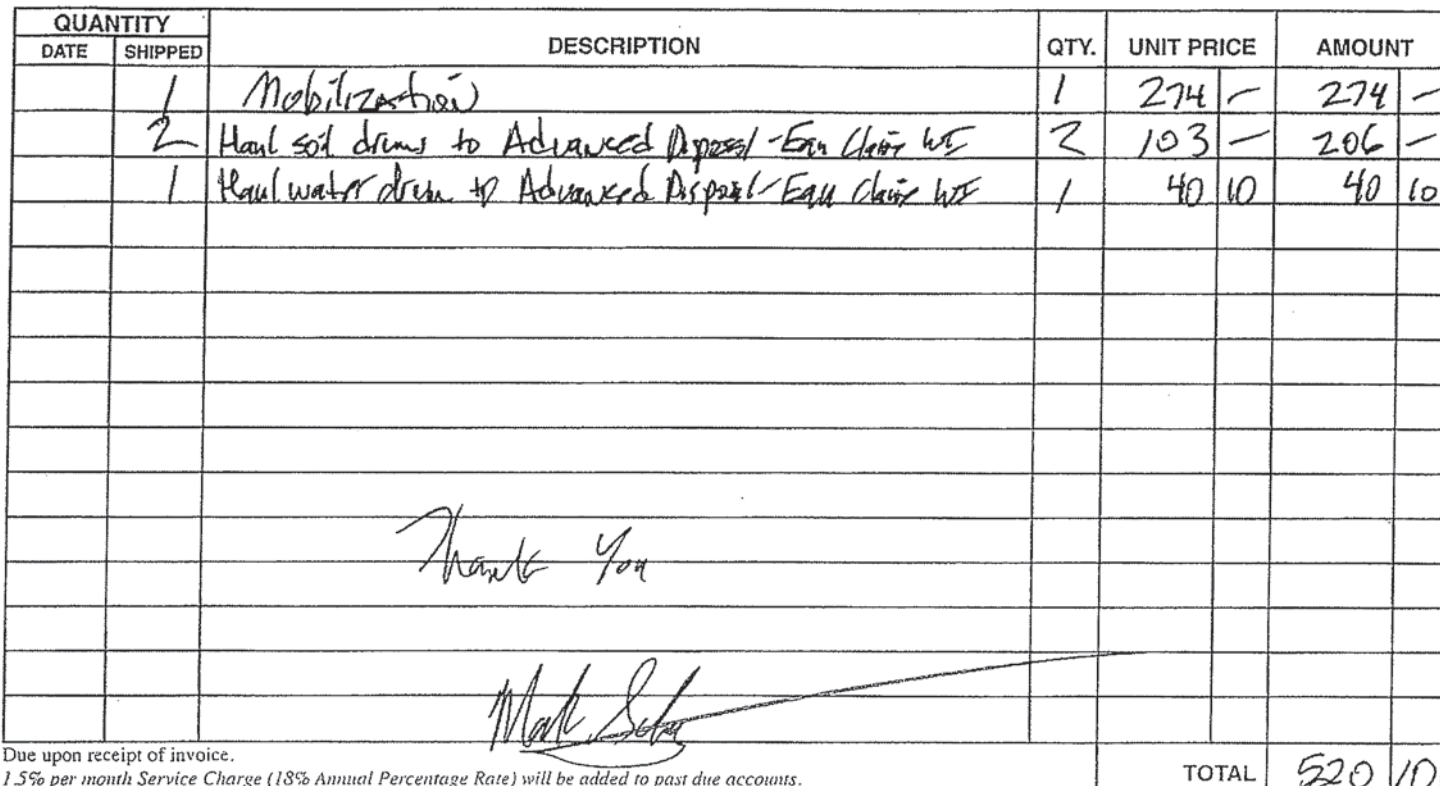 QUANTITY
DATE SHIPPED DESCRIPTION QTY. UNIT PRICE AMOUNT
1 Mobilization 1 274 - 274 -
2 Haul soil drums to Advanced Disposal - Eau Claire WI 2 103 - 206 -
1 Haul water drum to Advanced Disposal - Eau Claire WI 1 40 10 40 10
Thank You
Mark
Due upon receipt of invoice.
1.5% per month Service Charge (18% Annual Percentage Rate) will be added to past due accounts.
TOTAL 520 10